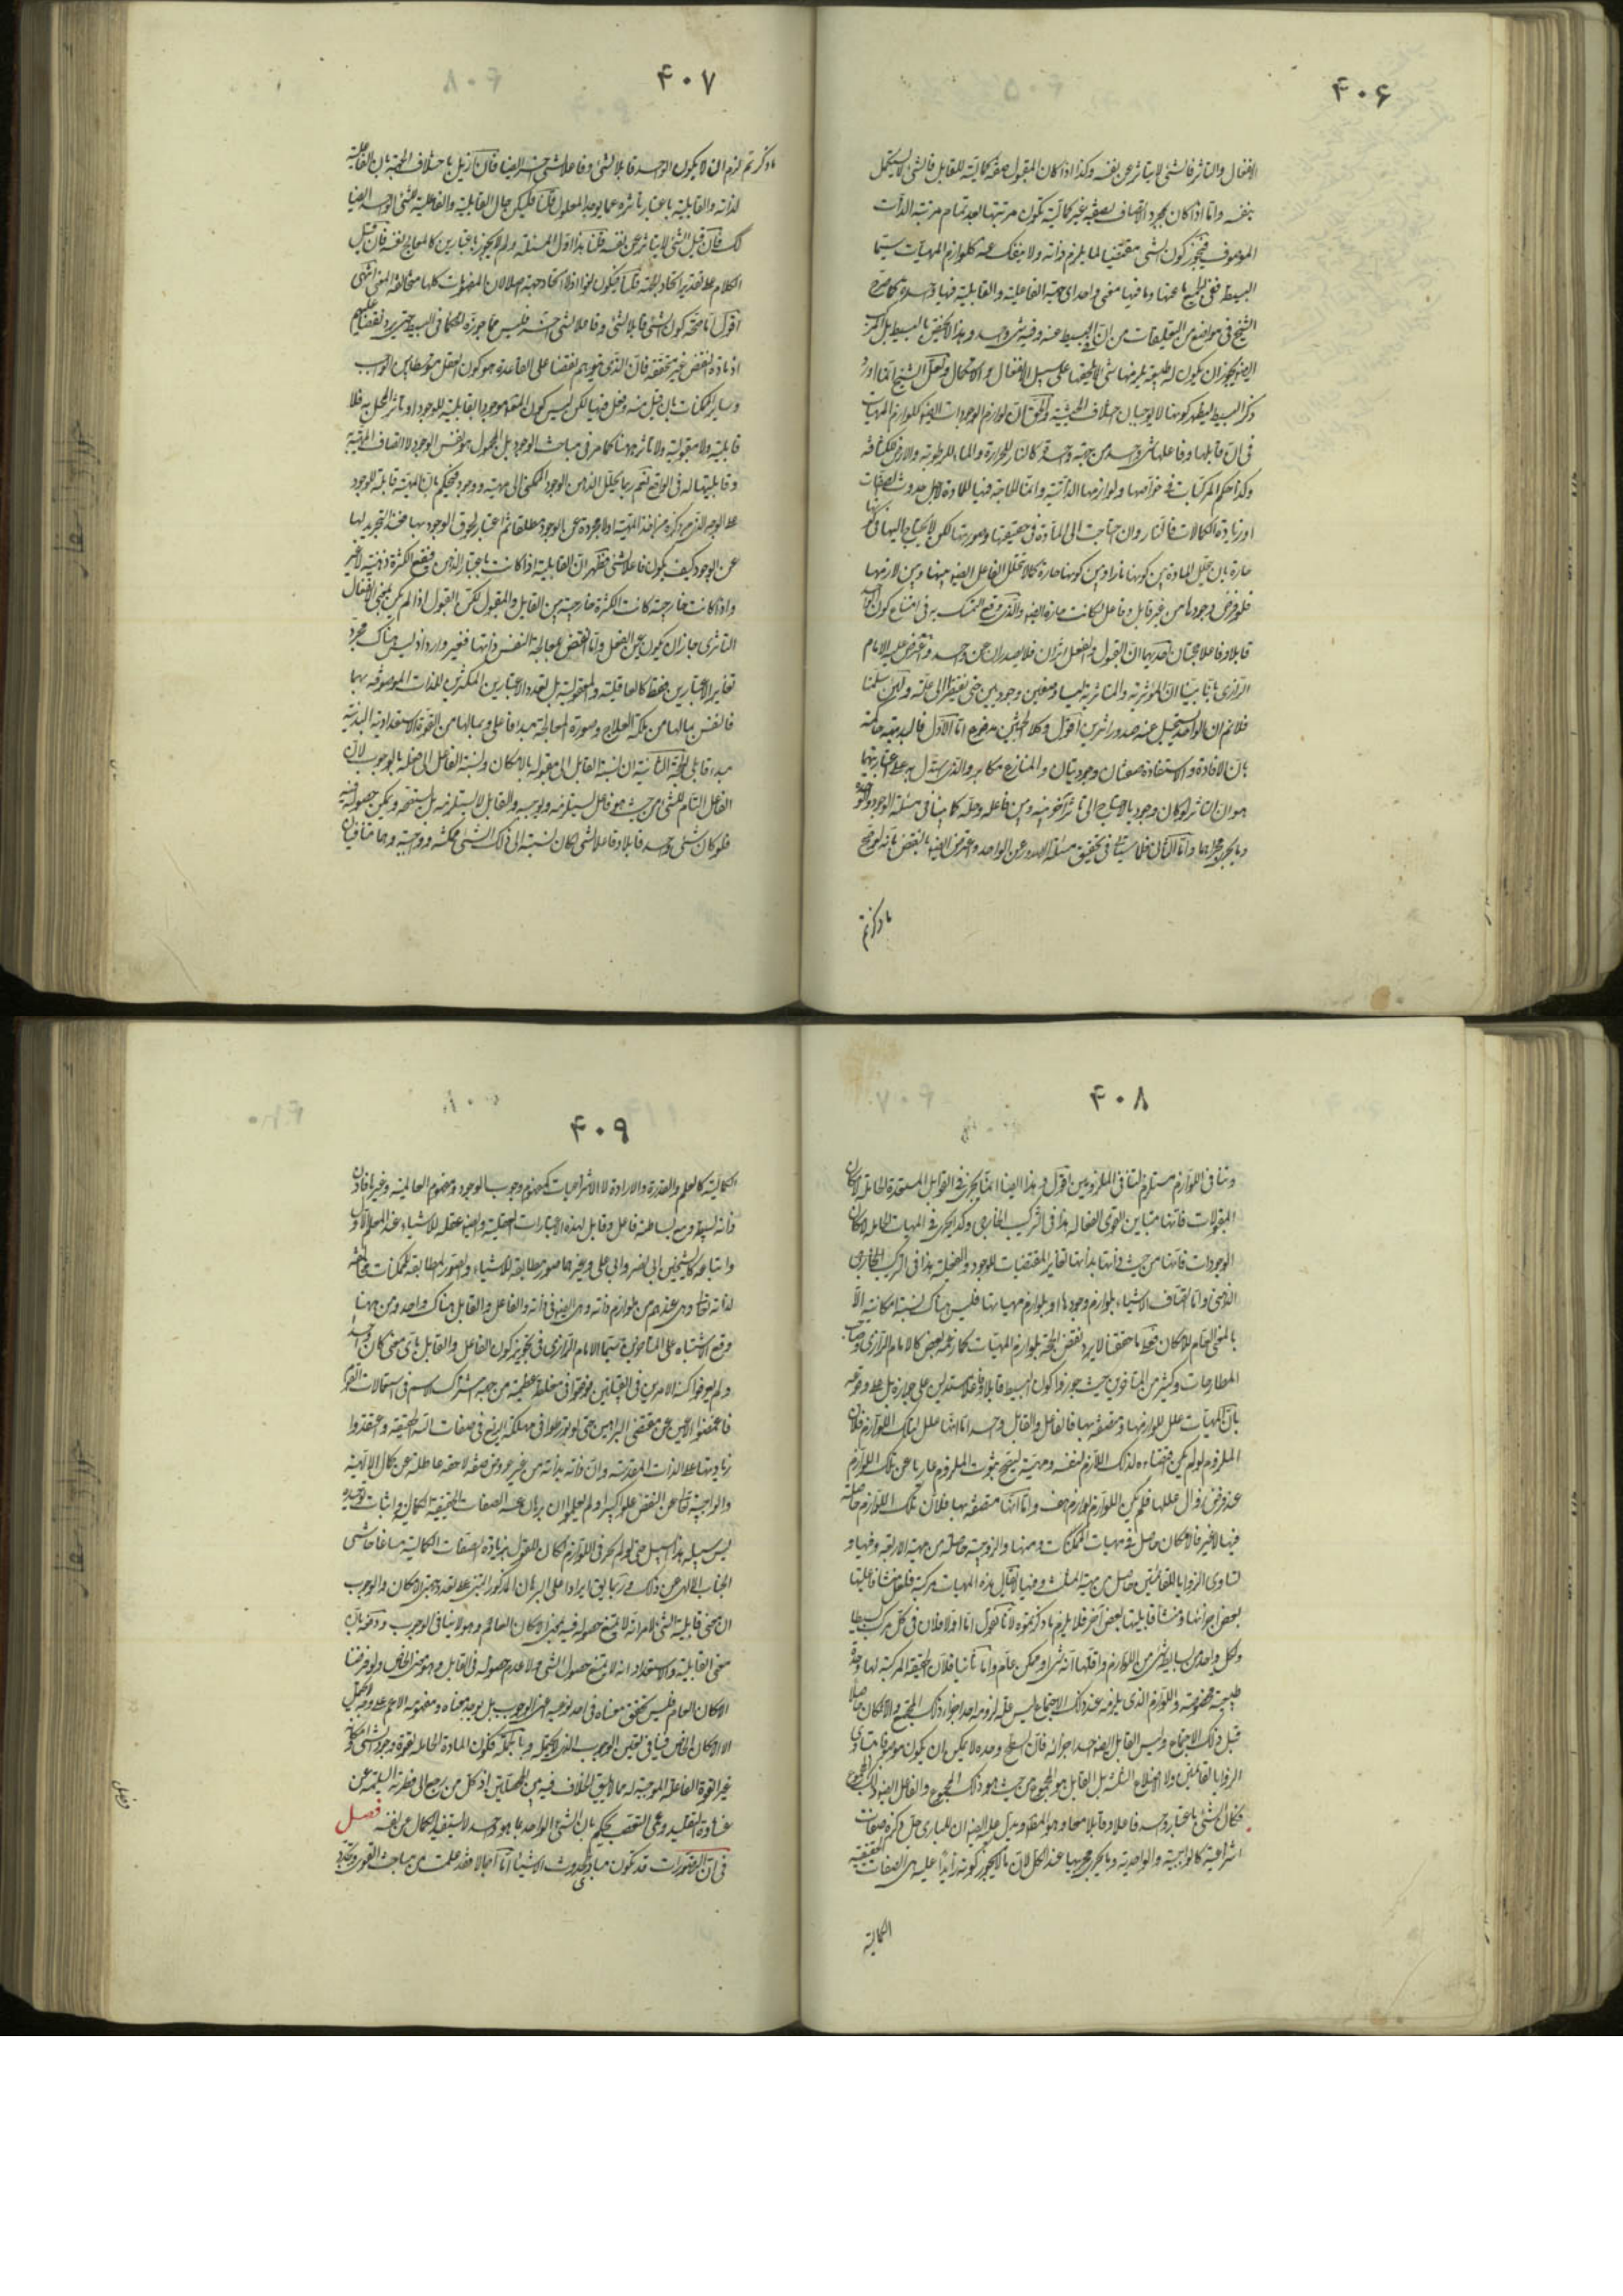 ۴۰۶
الانفعال والتاثر فالشئ لا يتاثر عن نفسه وكذا اذا كان المقبول صفة كمالية للقابل فالشئ لا يستكمل
بنفسه واما اذا كان مجرد الاتصاف بصفة غير كمالية تكون مرتبتها بعد تمام مرتبة الذات
الموصوف فيجوز كون الشئ مقتضيا لما يلزم ذاته ولا ينفك عنه كلوازم المهيات سيما
البسيط ففى الجميع ما عنها وما فيها معنى واحد اى جهة الفاعلية والقابلية فيها واحدة كما صرح
الشيخ فى مواضع من التعليقات من ان البسيط عنه وفيه شئ واحد وهذا لا يختص بالبسيط بل المركب
ايضا يجوز ان يكون له طبيعة يلزمها شئ لا يلحقها على سبيل الانفعال والاستكمال ولعل الشيخ انما اورد
ذكر البسيط ليظهر كونهما لا يوجبان اختلاف الحيثية والحق ان لوازم الوجودات ايضا كلوازم المهيات
فى ان قابلها وفاعلها شئ واحد من جهة واحدة كالنار للحرارة والماء للرطوبة والارض للكثافة
وكذا حكم المركبات فى خواصها ولوازمها الذاتية وانما الحاجة فيها للمادة لاجل حدوث الصفات
او زيادة الكمالات فالنار وان احتاجت الى المادة فى حقيقتها وصورتها لكن لا يحتاج اليها فى كونها
حارة بان يتخلل المادة بين كونها نارا وبين كونها حارة كما لا تخلل الفاعل ايضا بينها وبين لازمها
فلو فرض وجودها من غير قابل وفاعل لكانت حارة ايضا والذى وقع التمسك به فى امتناع كون الواحد
قابلا وفاعلا حجتان احديهما ان القبول والفعل اثران فلا يصدران عن واحد واعترض عليه الامام
الرازى بانا بينا ان المؤثرية والمتاثرية ليسا وصفين وجوديين حتى يفتقرا الى علة ولئن سلمنا
فلا نم ان الواحد يستحيل عنه صدور اثرين اقول وكلا البحثين مدفوع اما الاول فالبديهة حاكمة
بان الافادة والاستفادة صفتان وجوديتان والمنازع مكابر والذى يستدل به على اعتباريتهما
هو ان التاثر لو كان وجوديا لاحتاج الى تاثر آخر بينه وبين فاعله وحله كما بينا فى مسئلة الوجود والوحدة
وما يجرى مجراهما واما الثانى فلما سيأتى فى تحقيق مسئلة الصدور عن الواحد واعترض ايضا بالنقض بانه لو صح
ما ذكرتم
۴۰۷
ما ذكرتم لزم ان لا يكون الواحد قابلا لشئ وفاعلا لشئ آخر ايضا فان ازيل باختلاف الجهة بان الفاعلية
لذاته والقابلية باعتبار تأثره عما يوجد المعلول قلنا فليكن حال القابلية والفاعلية للشئ الواحد ايضا
كك فان قيل الشئ لا يتاثر عن نفسه قلنا هذا اول المسئلة ولم لا يجوز باعتبارين كالمعالج لنفسه فان قيل
الكلام على تقدير اتحاد الجهة قلنا فيكون لغوا اذ لا اتحاد جهة اصلا لان المفهومات كلها متخالفة المعنى انتهى
اقول اما صحة كون الشئ قابلا لشئ وفاعلا لشئ آخر فليس مما جوزه الحكماء فى البسيط حتى يرد نقضا عليهم
اذ مادة النقض غير متحققة فان الذى يتوهم نقضا على القاعدة هو كون العقل متوسطا بين الواجب
وساير الممكنات بان قبل منه وفعل فيها لكن ليس كون المتقدم موجودا بالقابلية للوجود او تاثر المحل به فلا
قابلية ولا مقبولية ولا تاثر ههنا كما مر فى مباحث الوجود بل المجعول هو نفس الوجود لا اتصاف المهية به
وقابليتها له فى الواقع نعم ربما يحلل الذهن الوجود الممكن الى مهية ووجود فيحكم بان المهية قابلة للوجود
على الوجه الذى مر ذكره من اخذ المهية اولا مجردة عن الوجود مطلقا ثم اعتبار لحوق الوجود بها فعند التجريد لها
عن الوجود كيف يكون فاعلا لشئ فظهر ان القابلية اذا كانت باعتبار الذهن فيقع الكثرة ذهنية لا غير
واذا كانت خارجية كانت الكثرة خارجية بين القابل والمقبول لكن القبول اذا لم يكن بمعنى الانفعال
التاثرى جاز ان يكون عين الفعل واما النقض بمعالجة النفس ذاتها فغير وارد اذ ليس هناك مجرد
تغاير الاعتبارين فقط كالعاقلية والمعقولية بل تعدد الاعتبارين المكثرين للذات الموصوفة بهما
فالنفس بمالها من ملكة العلاج وصورة المعالجة مبدء فاعلى وبمالها من القوة الاستعدادية البدنية
مبدء قابلى الحجة الثانية ان نسبة القابل الى مقبوله بالامكان ونسبة الفاعل الى فعله بالوجوب لان
الفاعل التام للشئ من حيث هو فاعل يستلزمه ويوجبه والقابل لا يستلزمه بل يستحقه ويمكن حصوله فيه
فلو كان شئ واحد قابلا وفاعلا لشئ لكان نسبته الى ذلك الشئ ممكنة وواجبة وهما متنافيان
۴۰۸
وتنافى اللوازم مستلزم لتنافى الملزومين اقول وهذا ايضا انما يجرى فى القوابل المستعدة الحاملة لامكان
المقبولات فانها تباين القوى الفعالة هذا فى التركيب الخارجى وكذا يجرى فى المهيات الحاملة لامكان
الوجودات فانها من حيث ذاتها بذاتها تغاير المقتضيات للوجود والفعلية هذا فى التركيب الخارجى
الذهنى واما اتصاف الاشياء بلوازم وجودها او بلوازم مهياتها فليس هناك نسبة امكانية الا
بالمعنى العام للامكان فقط ما حققنا لا يرد نقض الحجة بلوازم المهيات كما زعمه بعض كالامام الرازى وصاحب
المطارحات وكثير من المتاخرين حيث جوزوا كون البسيط قابلا وفاعلا مستدلين على جوازه بل على وقوعه
بان المهيات علل للوازمها ومتصفة بها فالفاعل والقابل واحد اما انها علل لتلك اللوازم فلان
الملزوم لو لم يكن اقتضاءه لذلك اللازم لنفسه ومهيته ليصح ثبوت الملزوم عاريا عن تلك اللوازم
عند فرض زوال عللها فلم يكن اللوازم لوازم هف واما انها متصفة بها فلان تلك اللوازم حاصلة
فيها لا غير فالامكان حاصل فى مهيات الممكنات ومنها والزوجية حاصلة من مهية الاربعة وفيها و
تساوى الزوايا للقائمتين حاصل من مهية المثلث وفيها لا يقال هذه المهيات مركبة فلعل منشأ فاعليتها
بعض اجزائها ومنشأ قابليتها بعض آخر فلا يلزم ما ذكرتموه لانا نقول اما اولا فلان فى كل مركب بسيطا
ولكل واحد من البسايط شئ من اللوازم واقلها انه شئ او ممكن عام واما ثانيا فلان الحقيقة المركبة لها وحدة
طبيعية مخصوصة واللوازم الذى يلزمه عند ذلك الاجتماع ليس علة لزومه احد اجزاء ذلك المجتمع والا لكان حاصلا
قبل ذلك الاجتماع وليس القابل ايضا احد اجزائه فان السطح وحده لا يمكن ان يكون موصوفا بتساوى
الزوايا لقائمتين ولا الاضلاع الثلثة بل القابل هو المجموع من حيث هو ذلك المجموع والفاعل ايضا ذلك المجموع
فكان الشئ باعتبار واحد فاعلا وقابلا معا وهو المط ومما يدل عليه ايضا ان للبارى جل ذكره صفات
انتزاعية كالواجبية والواحدية وما يجرى مجريها عند الكل لان ما لا يجوز كونه زائدا عليه هى الصفات الحقيقية
الكمالية
۴۰۹
الكمالية كالعلم والقدرة والارادة لا الانتزاعيات كمفهوم وجوب الوجود ومفهوم العالمية وغيرها فاذن
ذاته البسيطة مع بساطته فاعل وقابل لهذه الاعتبارات العقلية وايضا عقله للاشياء عند المعلم الاول
واتباعه كالشيخين ابى نصر وابى على وغيرهما صور مطابقة للاشياء والصور المطابقة للممكنات مخالفة
لذاته تعالى وهى عندهم من لوازم ذاته وهى ايضا فى ذاته والفاعل والقابل هناك واحد ومن ههنا
وقع الاشتباه على المتاخرين سيما الامام الرازى فى تجويز كون الفاعل والقابل باى معنى كان واحدا
ولم يعرفوا كنه الامرين فى القبيلتين فوقعوا فى مغلطة عظيمة من جهة اشتراك الاسم فى استعمالات القوم
فاغمضوا الاعين عن مقتضى البراهين حتى تورطوا فى مهلكة الزيغ فى صفات الله الحقيقية واعتقدوا
زيادتها على الذات المقدسة وان ذاته بذاته من غير عروض صفة لاحقة عاطلة عن كمال الالهية
والواجبية تعالى عن النقص علوا كبيرا ولم يعلموا ان برهان عينية الصفات الحقيقية الكمالية واثبات توحيده
ليس سبيله هذا السبيل حتى لو لم يجر فى اللوازم لكان للقول بزيادة الصفات الكمالية مساغا حاشى
الجناب الالهى عن ذلك وربما يق ايرادا على البرهان المذكور المبتنى على تعدد جهتى الامكان والوجوب
ان معنى قابلية الشئ لامر انه لا يمتنع حصوله فيه بمعنى الامكان العام وهو لا ينافى الوجوب ودفعه بان
معنى القابلية والاستعداد انه لا يمتنع حصول الشئ ولا عدم حصوله فى القابل وهو معنى الامكان الخاص ولو فرضنا
الامكان العام فليس تحقق معناه فى احد نوعيه اعنى الوجوب بل يوجد معناه ومفهومه الاعم على وجه لا يحتمل
الا الامكان الخاص فينافى تعين الوجوب الذى لا يحتمله وبالجملة فكون المادة الحاملة لقوة وجود الشئ وامكانه
غير القوة الفاعلة الموجبة له مما لا يليق الخلاف فيه بين المحصلين اذ كل من يرجع الى فطرته السليمة عن
غشاوة التقليد وعمى التعصب يحكم بان الشئ الواحد بما هو واحد لا يستفيد الكمال من نفسه فصل
فى ان التصورات قد تكون مبادى لحدوث الاشياء اما اجمالا فقد علمت من مباحث القوى وتجديد